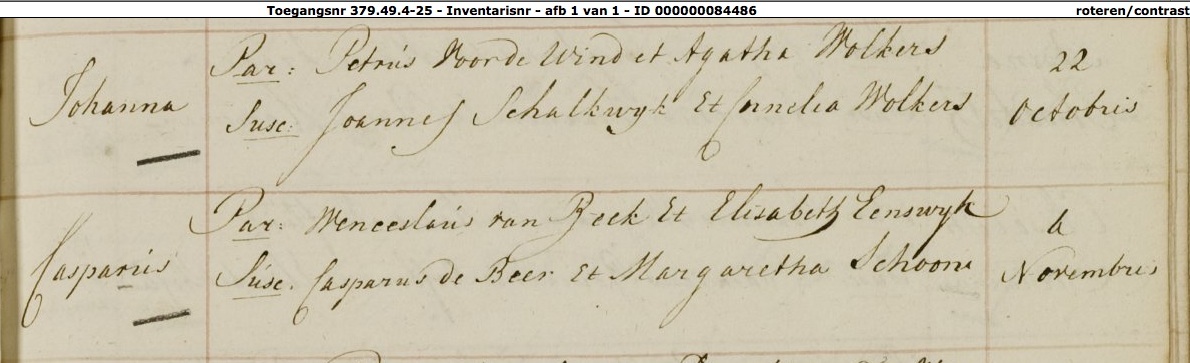 Toegangsnr 379.49.4-25 - Inventarisnr - afb 1 van 1 - ID 000000084486
roteren/contrast
Par: Petrus Voorde Wind et Agatha Wolkers
22
Johanna
Susc: Joannes Schalkwyk Et Cornelia Wolkers
Octobris
Par: Wenceslaus van Beek Et Elisabeth Eenswyk
4
Casparus
Susc. Casparus de Beer Et Margaretha Schoone
Novembris